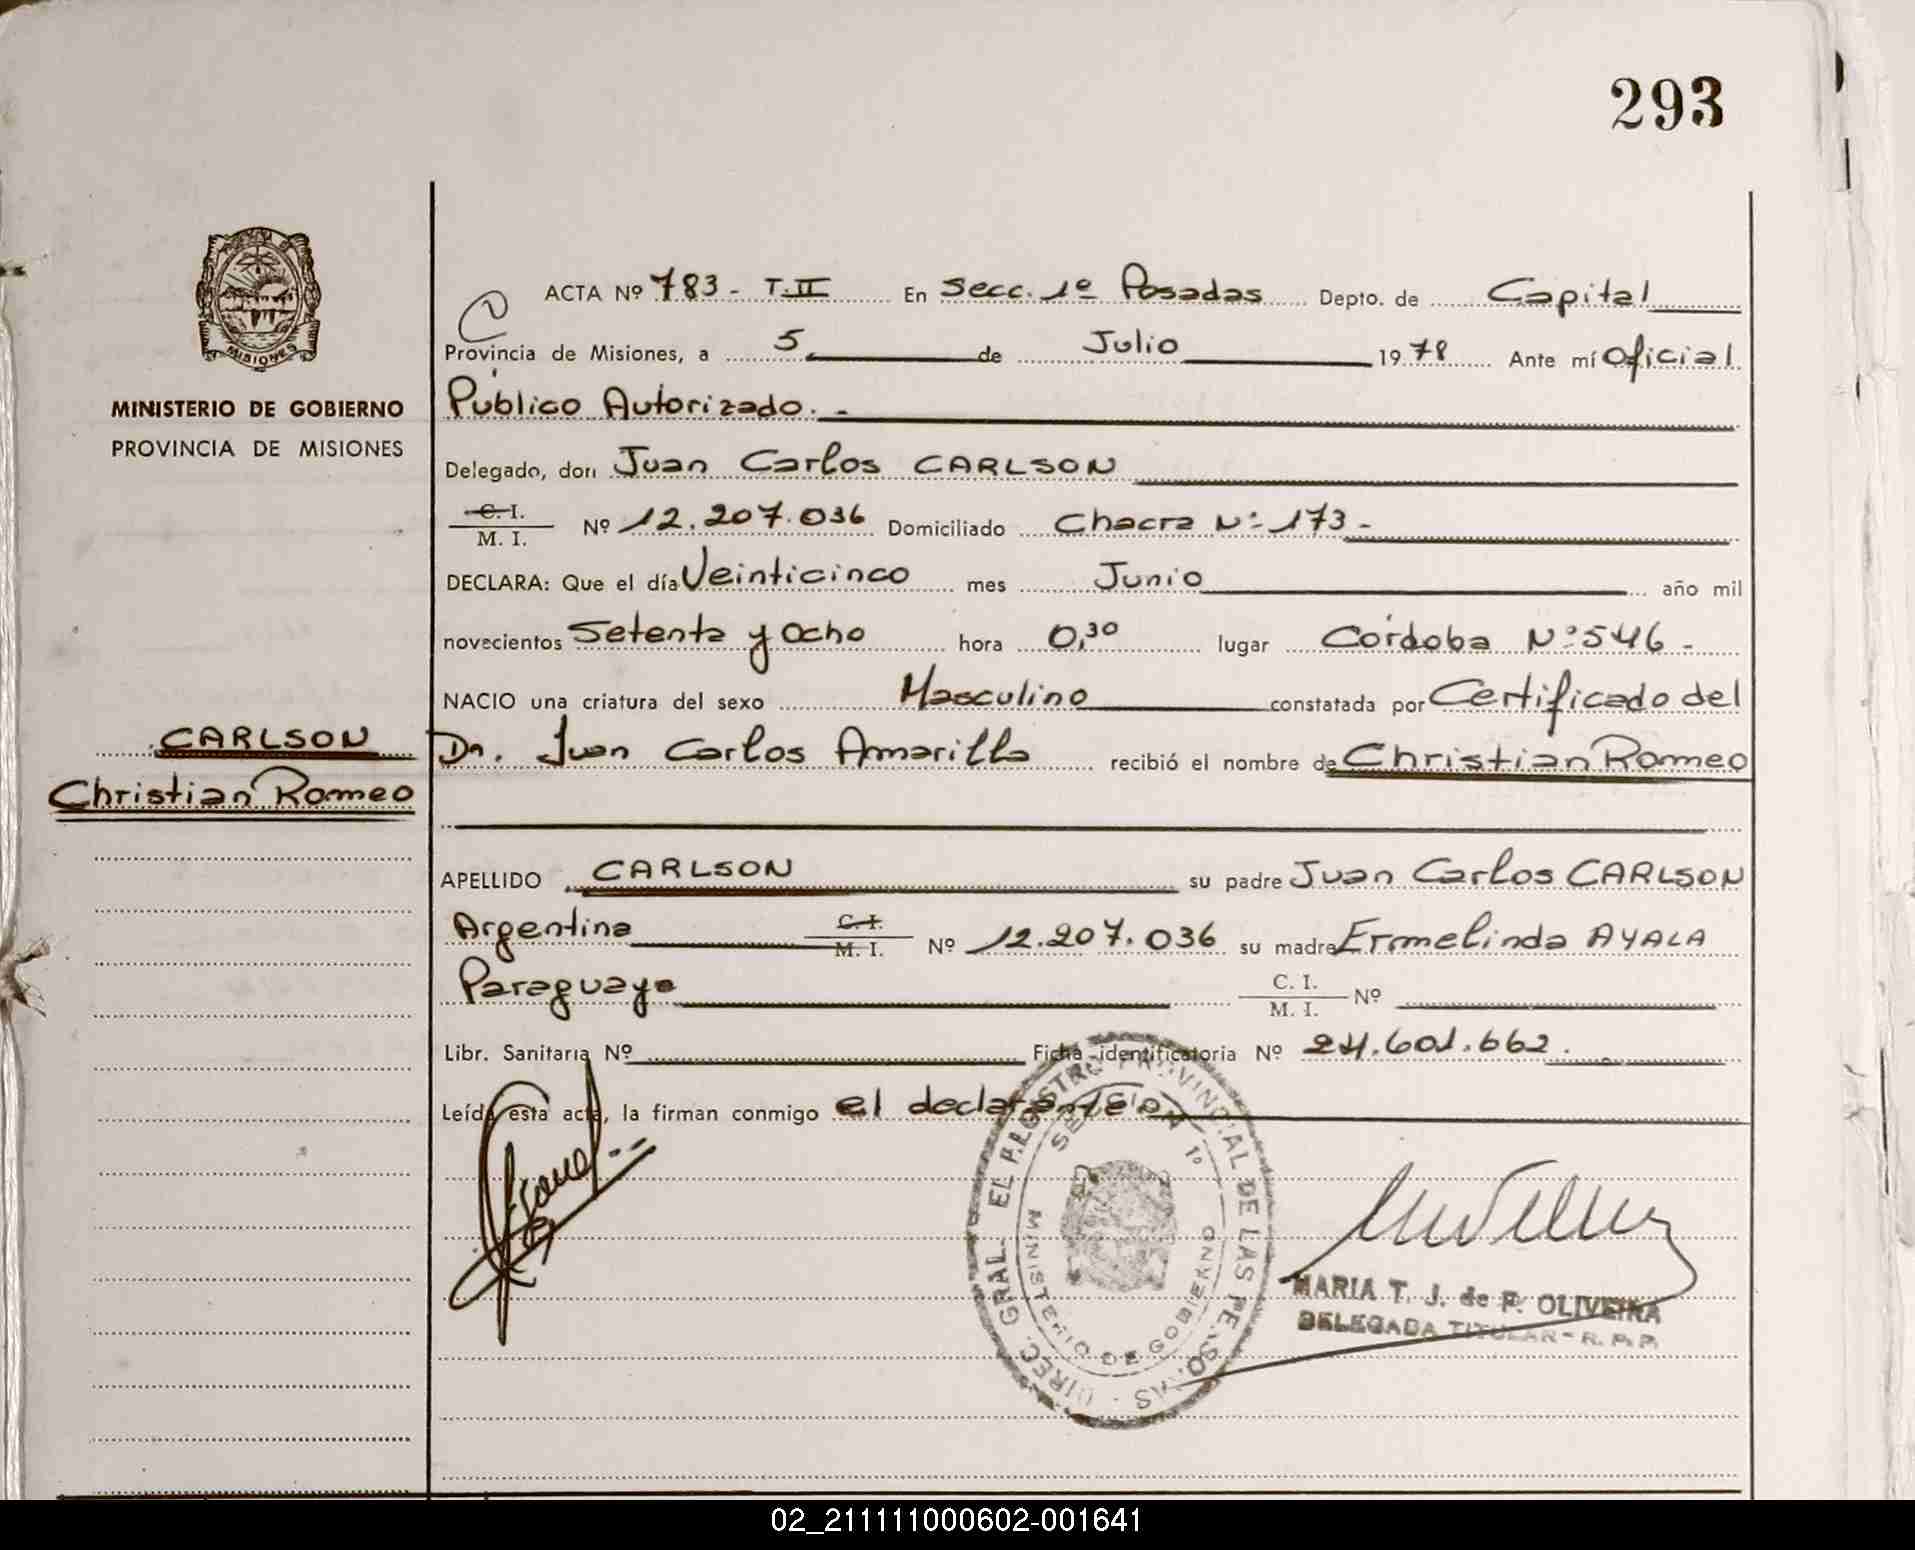 293
ACTA Nº 783 - T. II En Secc. 1º Posadas Depto. de Capital
Provincia de Misiones, a 5 de Julio 1978 Ante mí Oficial
Público Autorizado. -
Delegado, don Juan Carlos CARLSON
C. I. / M. I. Nº 12.207.036 Domiciliado Chacra Nº 173 -
DECLARA: Que el día Veinticinco mes Junio año mil
novecientos Setenta y Ocho hora 0,30 lugar Córdoba Nº 546 -
NACIO una criatura del sexo Masculino constatada por Certificado del
Dr. Juan Carlos Amarilla recibió el nombre de Christian Romeo
APELLIDO CARLSON su padre Juan Carlos CARLSON
Argentino C. I. / M. I. Nº 12.207.036 su madre Ermelinda AYALA
Paraguaya C. I. / M. I. Nº
Libr. Sanitaria Nº Ficha identificatoria Nº 24.601.662.
Leída esta acta, la firman conmigo el declarante
MISIONES
MINISTERIO DE GOBIERNO
PROVINCIA DE MISIONES
CARLSON
Christian Romeo
DIREC. GRAL. EL REGISTRO PROVINCIAL DE LAS PERSONAS
SECCION 1º
MINISTERIO DE GOBIERNO
MARIA T. J. de F. OLIVEIRA
DELEGADA TITULAR - R. P. P.
02_211111000602-001641